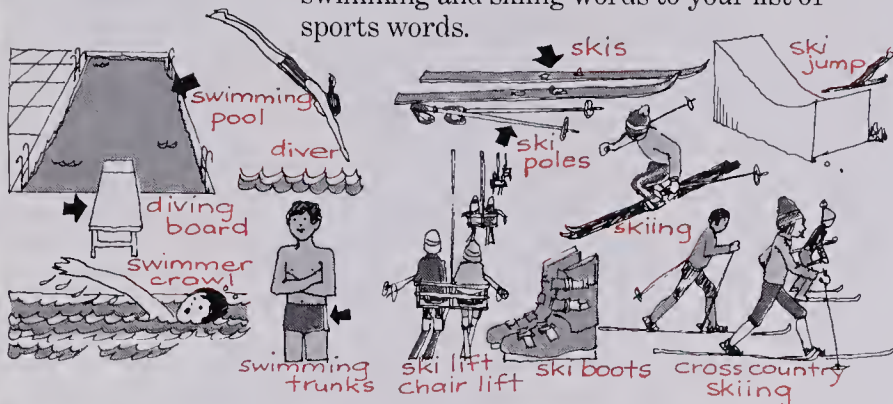 swimming and skiing words to your list of
sports words.
swimming
pool
diver
diving
board
swimmer
crawl
swimming
trunks
skis
ski
jump
ski
poles
skiing
ski lift
chair lift
ski boots
cross country
skiing